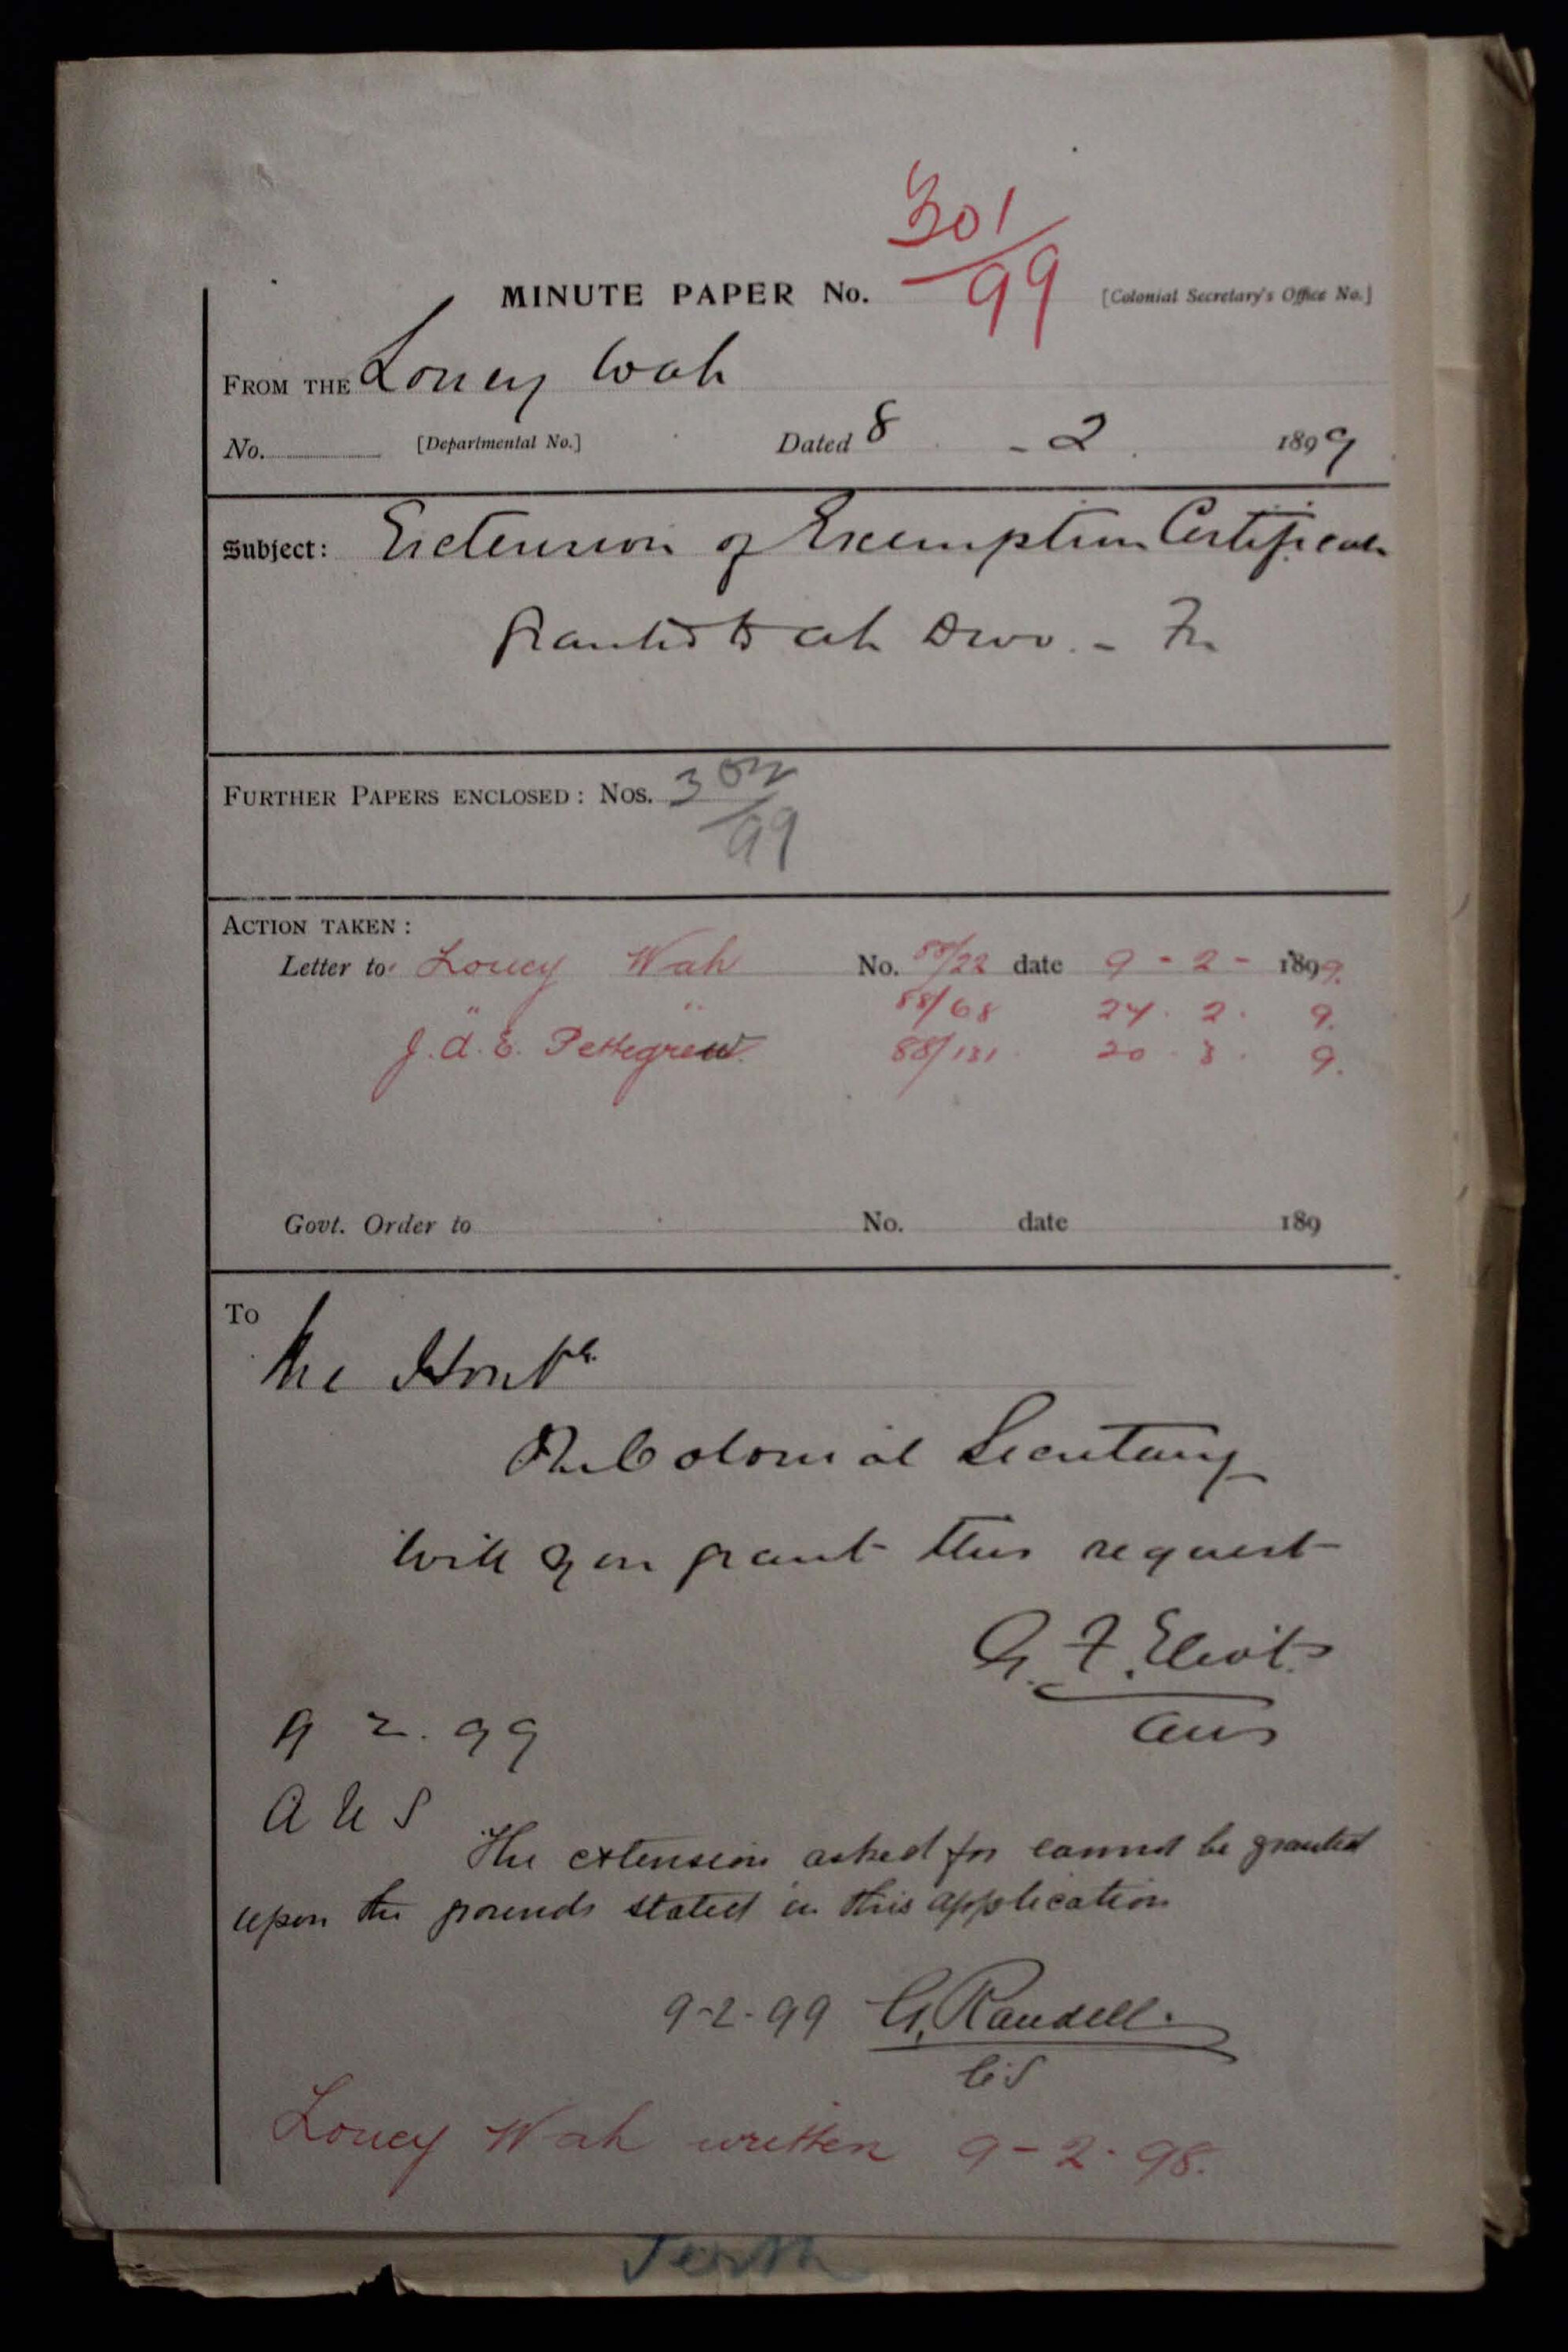 301/99
MINUTE PAPER No. [Colonial Secretary's Office No.]
FROM THE Loney Wah
No. [Departmental No.] Dated 8 - 2 1899
Subject: Extension of Exemption Certificate
granted to Ah
FURTHER PAPERS ENCLOSED: Nos. 302/99
ACTION TAKEN:
Letter to Loney Wah No. 88/22 date 9 - 2 - 1899.
" " 88/68 24. 2. 9.
J. A. E. Pettegrew. 88/131 20. 3. 9.
Govt. Order to No. date 189
To
The Honble
The Colonial Secretary
Will you grant this request
G. F. Eliot
aus
9 2. 99
A U S
The extension asked for cannot be granted
upon the grounds stated in this application
9-2-99 G. Randell.
C.S
Loney Wah written 9-2-98.
Perth